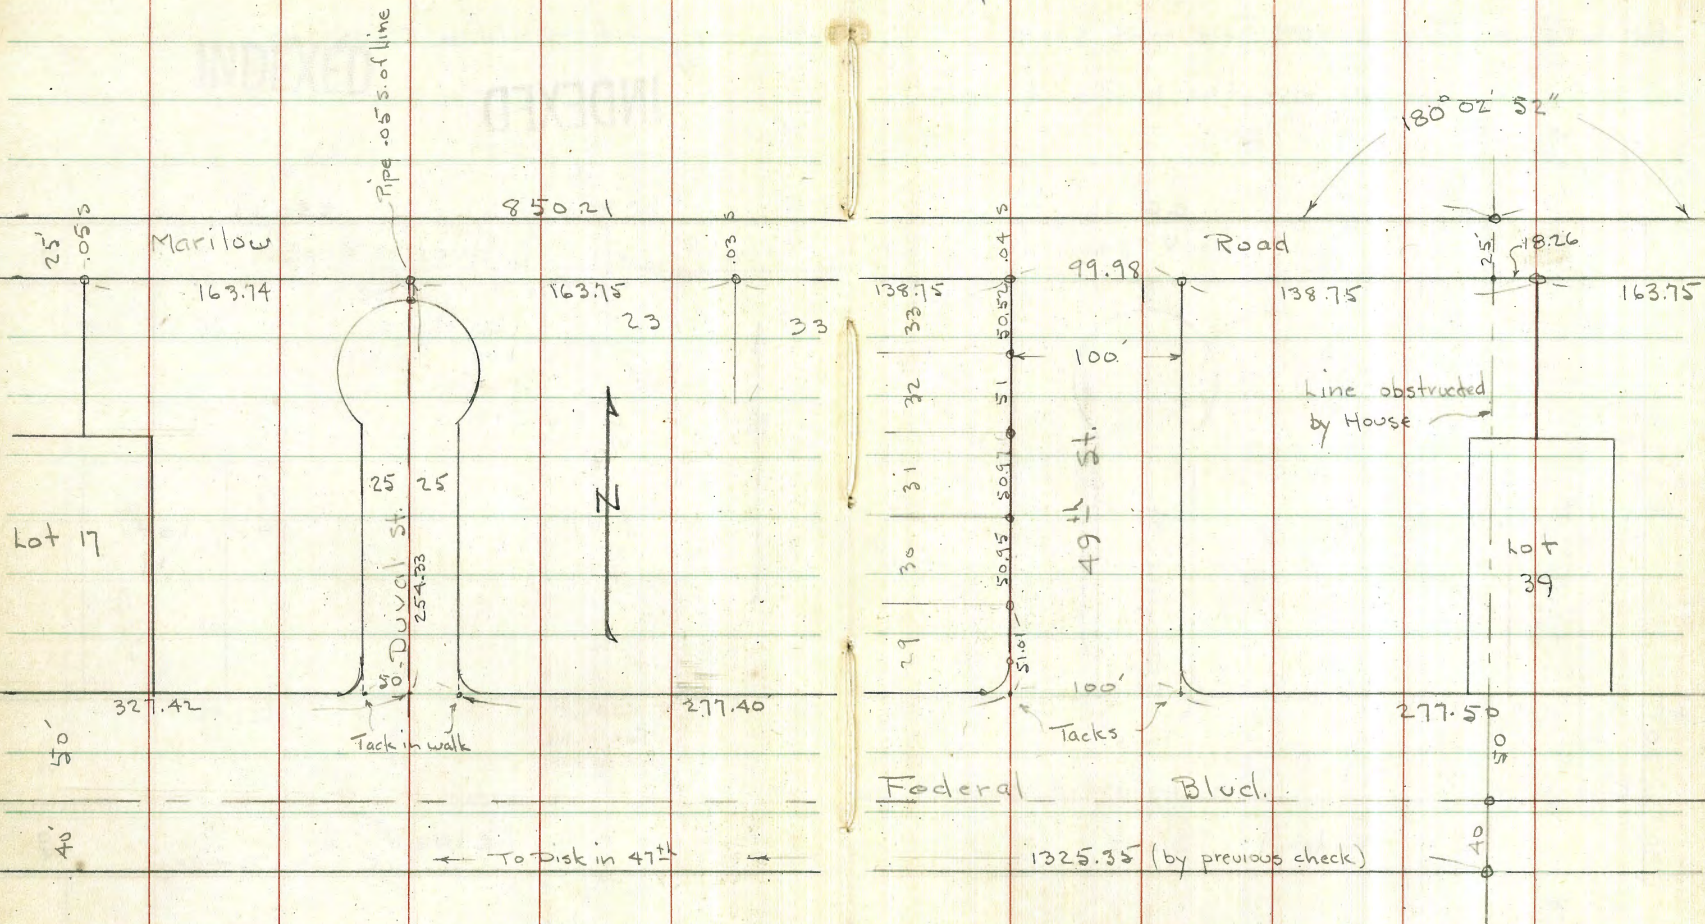 Pipe .05 s. of Line
INDEXED
INDEXED
180° 02' 52"
850.21
25'
.05 s
Marilow
.03 s
.04 s
Road
25'
18.26
163.74
163.75
138.75
99.98
138.75
163.75
23
33
33
50.52
100'
32
51
Line obstructed
by House
25 25
31
50.97
49th St.
N
Lot 17
Duval St.
254.33
30
50.95
Lot
39
29
51.01
50
100'
327.42
277.40
277.50
Tack in walk
Tacks
50'
50
Federal Blvd.
40'
40
To Disk in 47th
1325.35 (by previous check)